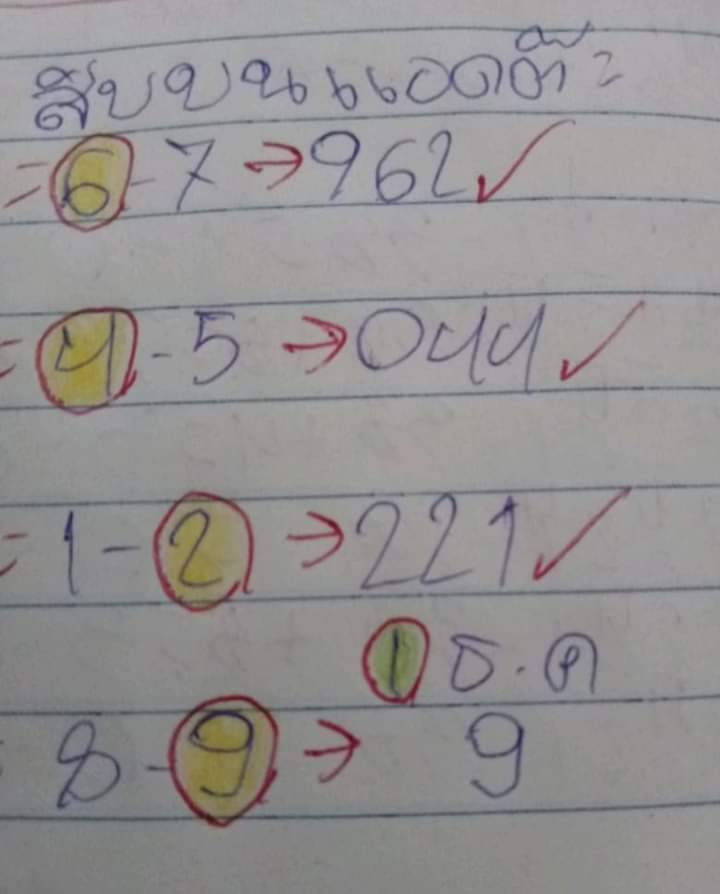 สิบบนแอดติ๊ะ
= 6 - 7 → 962 ✓
= 4 - 5 → 044 ✓
= 1 - 2 → 221 ✓
1 ธ.ค
8 - 9 → 9